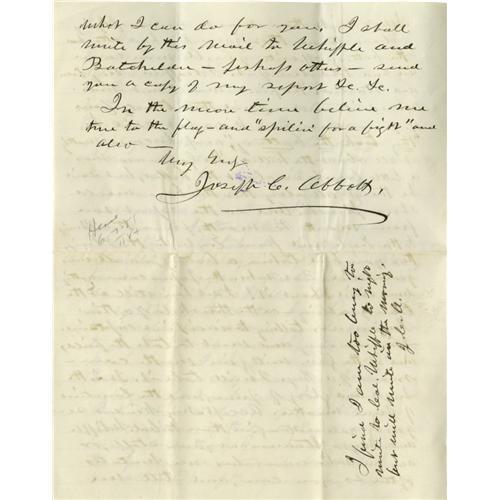 what I can do for you. I shall
write by this mail to Whipple and
Batchelder — perhaps others — send
you a copy of my report &c. &c.
In the mean time believe me
true to the flag — and "spilin' for a fight" and
also —
Joseph C. Abbott,
I find I am too busy to
write to Col. Whipple to night
but will write in the morning.
J. C. A.